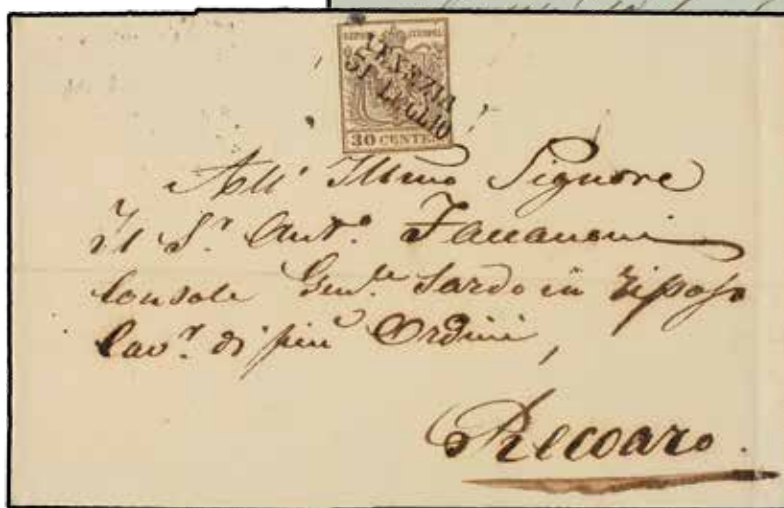 30 CENTES
VENEZIA
31 LUGLIO
All' Illmo Signore
Il Sr. Anto. Faccanoni
Console Genle. Sardo in riposo
Cavr. di più Ordini,
Recoaro.